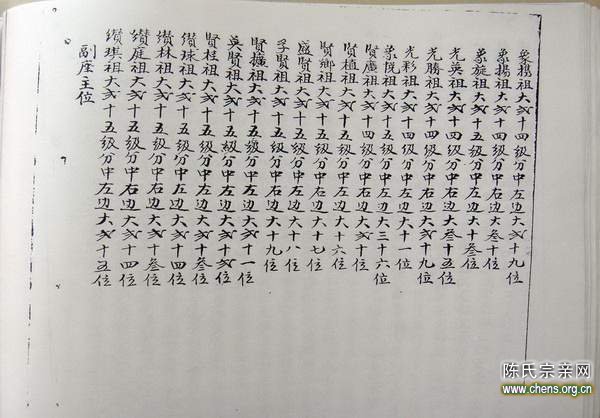 象揚祖大弍十四級分中左边大弍十九位
象揚祖大弍十四級分中右边大叁十位
象旋祖大弍十五級分中左边大十叁位
光英祖大弍十四級分中右边大叁十五位
光勝祖大弍十四級分中右边大弍十九位
光彩祖大弍十四級分中左边大十一位
祖大弍十四級分中左边大三十六位
賢廣祖大弍十四級分中右边大弍十位
賢植祖大弍十五級分中左边大十六位
賢鄉祖大弍十五級分中右边大十七位
盛賢祖大弍十五級分中左边大十八位
子賢祖大弍十五級分中右边大十九位
賢祖大弍十五級分中左边大弍十一位
英賢祖大弍十五級分中右边大弍十弍位
賢柱祖大弍十五級分中左边大弍十叁位
缵球祖大弍十五級分中左边大弍十四位
缵林祖大弍十五級分中右边大弍十叁位
缵庭祖大弍十五級分中右边大弍十四位
缵琪祖大弍十五級分中左边大弍十五位
副座主位
陈氏宗亲网
www.chens.org.cn